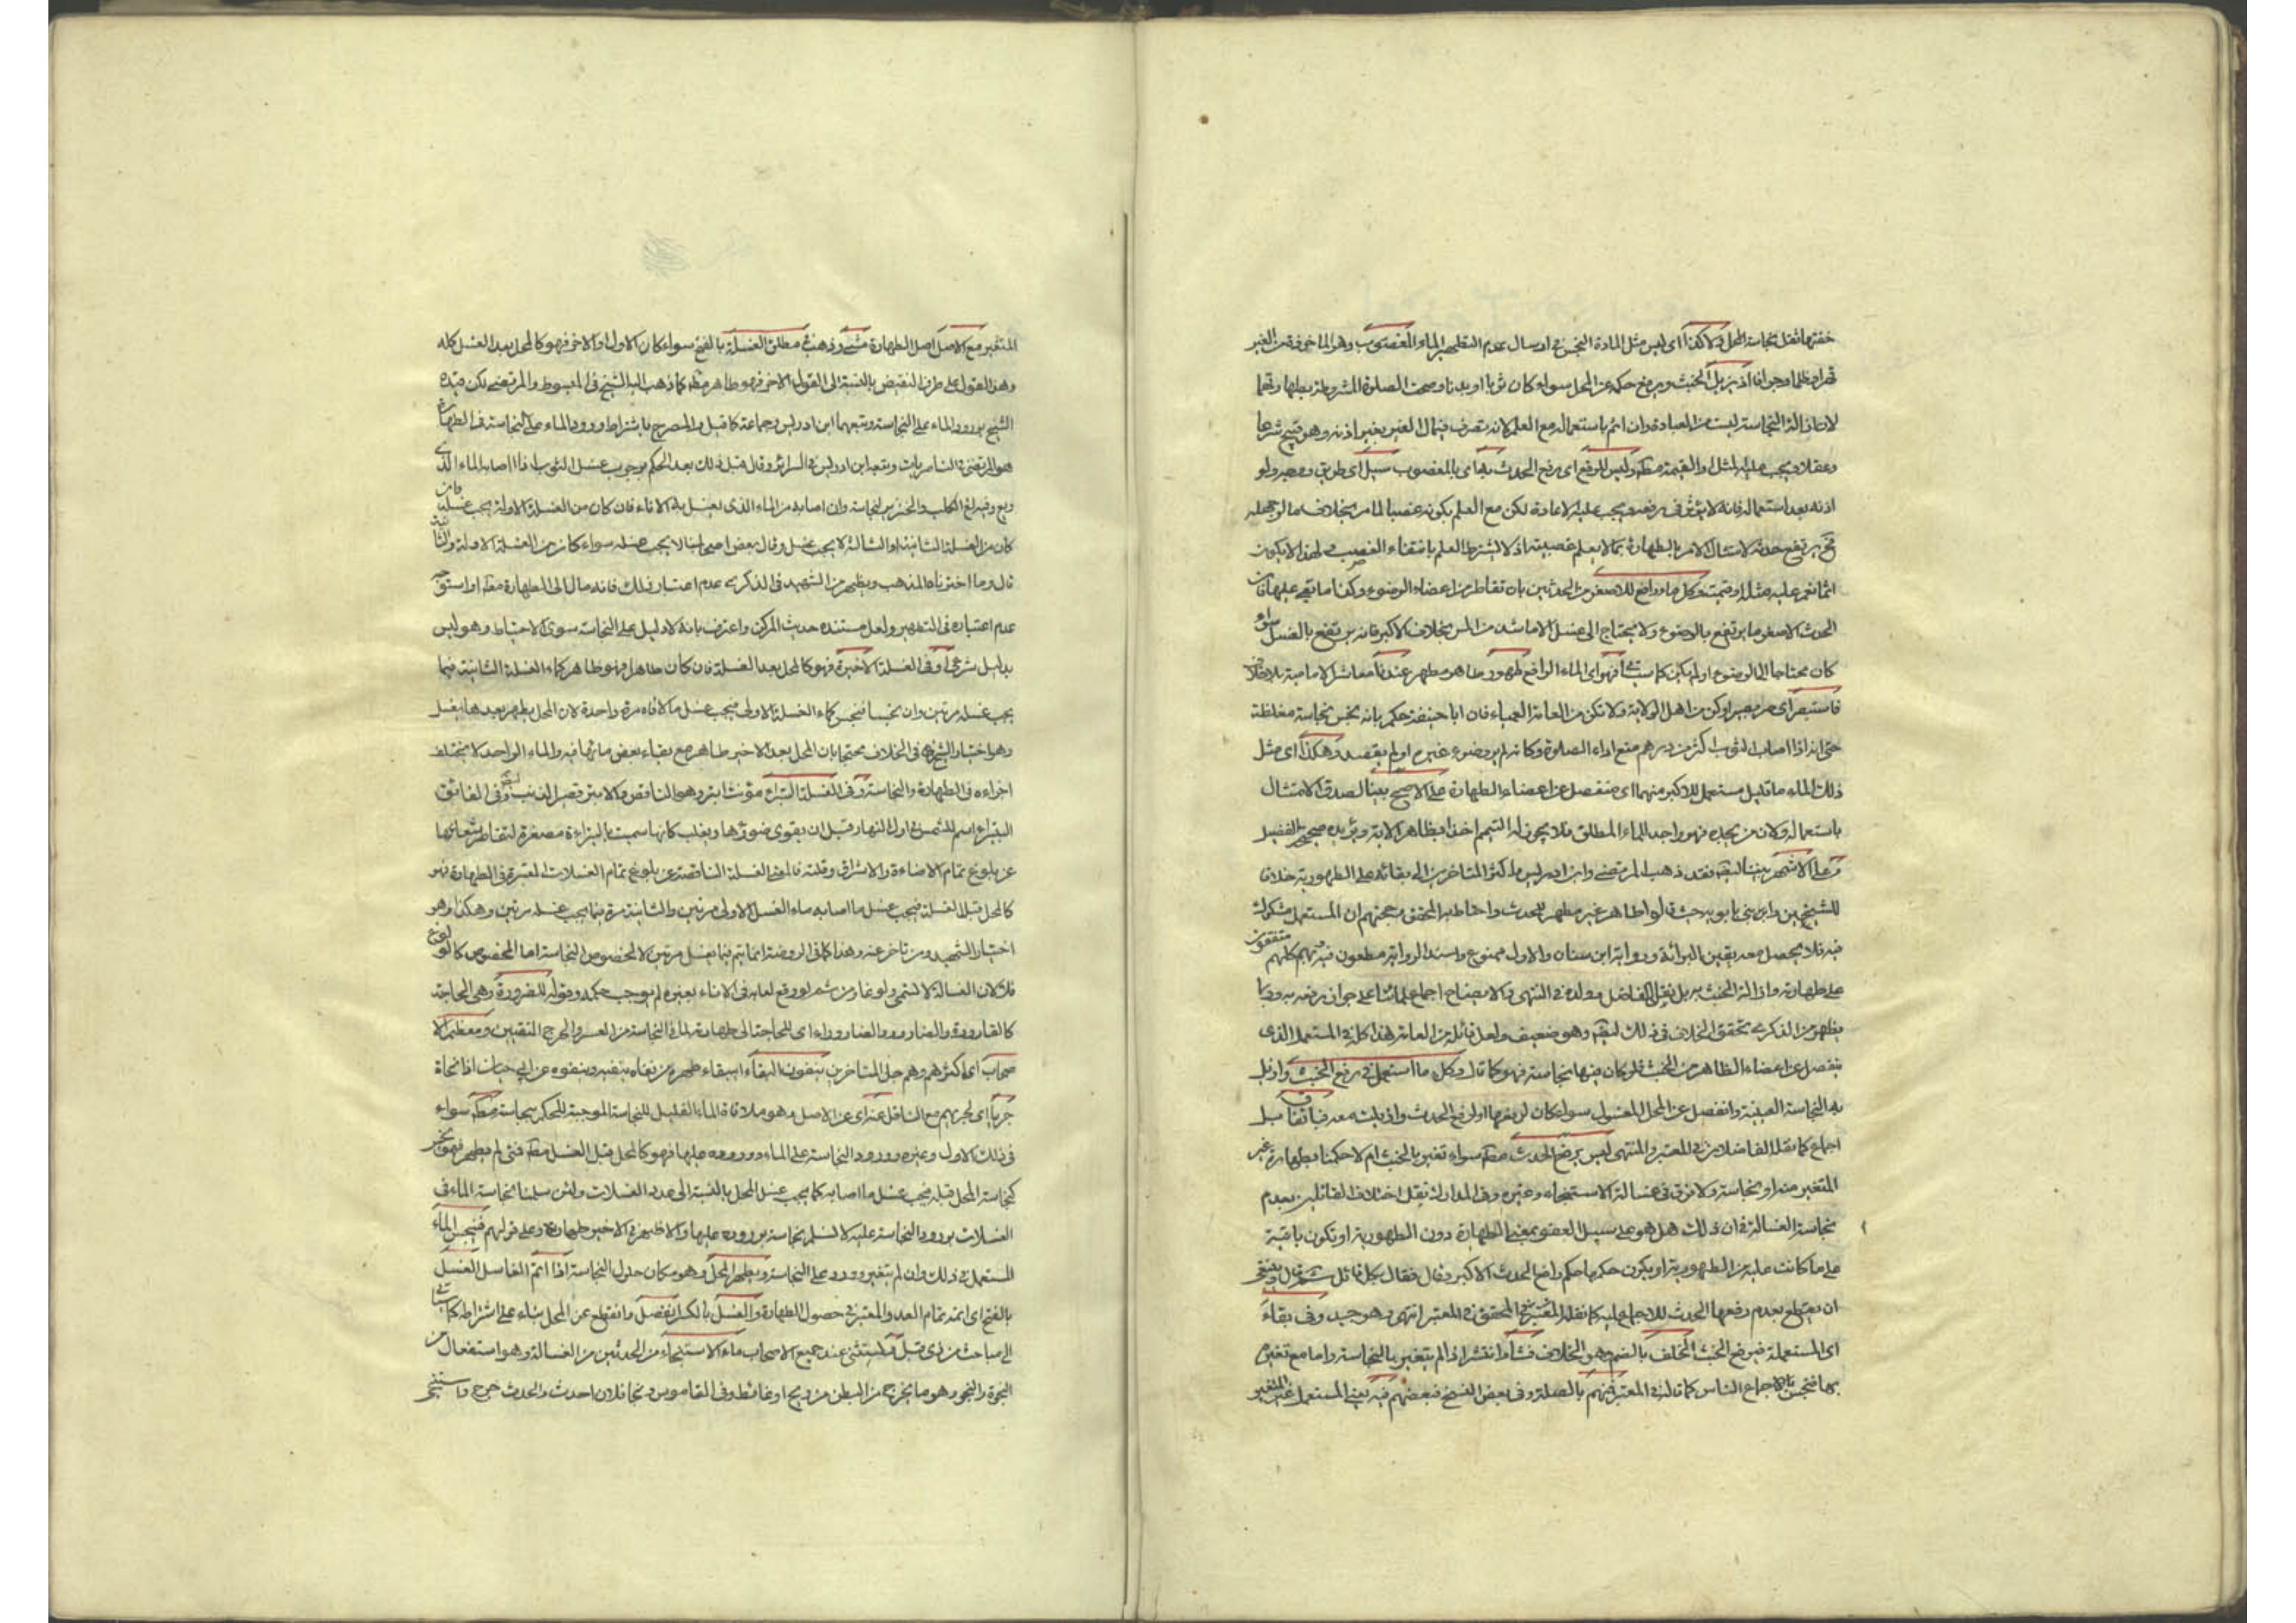 خفتها ثقل نجاسة المحل ولا كذا اى ليس مثل المادة النجس فى ارسال عدم التطهير الماء المغصوب وهو الماخوذ من الغير
قهرا وظلما وجوانا اذ يزيل الخبث ويرفع حكمه عن المحل سواء كان ثوبا او بدنا وصحت الصلوة المشروطة بطهارتهما
لان ازالة النجاسة ليست من العبادة وان اثم باستعماله مع العلم لانه تصرف فى مال الغير بغير اذنه وهو قبيح شرعا
وعقلا ويجب عليه المثل او القيمة مطلقا وليس للرفع اى رفع الحدث به اى بالمغصوب سبيل اى طريق ووجه ولو
اذنه بعد استعماله فانه لا يؤثر فى رفعه ويجب عليه الاعادة لكن مع العلم بكونه غصبا لما مر بخلاف ما لو جهله
فح يرتفع حدثه لامتثال الامر بالطهارة بما لا يعلم غصبيته اذ لا يشترط العلم بانتفاء الغصب لهذا لا يكون
اثما نعم عليه مثله او قيمته وكل ماء رافع للاصغر من الحدثين بان تقاطر من اعضاء الوضوء وكذا ما بقى عليها فان
الحدث الاصغر ما يرتفع بالوضوء ولا يحتاج الى غسل الا ما شذ من المس بخلاف الاكبر فانه يرتفع بالغسل سواء
كان محتاجا الى الوضوء او لم يكن كما سيأتى فهو اى الماء الرافع طهور طاهر مطهر عندنا معاشر الامامية بلا خلاف
فاستبصر اى صر بصيرا وكن من اهل الولاية ولا تكن من العامة العمياء فان ابا حنيفة حكم بانه نجس نجاسة مغلظة
حتى انه اذا اصاب الثوب اكثر من درهم منع اداء الصلوة وكانه لم ير وضوء غيره او لم يقصد وهكذا اى مثل
ذلك الماء ماء قليل مستعمل للاكبر منهما اى منفصل عن اعضاء الطهارة على الاصح بيننا لصدق الامتثال
باستعماله ولان من يجده فهو واجد للماء المطلق فلا يجوز له التيمم اخذا بظاهر الاية ويؤيده صحيح الفضيل
وعلى الاشهر بيننا فقد ذهب المرتضى وابن ادريس واكثر المتاخرين الى بقائه على الطهورية خلافا
للشيخين وابنى بابويه حيث قالوا طاهر غير مطهر للحدث واحتاط به المحقق محجتهم ان المستعمل مشكوك
فيه فلا يحصل معه يقين البرائة ورواية ابن سنان والاول ممنوع واسناد الرواية مطعون فيه ثم كلهم متفقون
على طهارته وازالة الخبث به بل نقل الفاضل وولده فى المنتهى والايضاح اجماع علمائنا على جواز رفعه به وربما
يظهر من الذكرى تحقق الخلاف فى ذلك ايضا وهو ضعيف ولعل قائله من العامة هذا كله فى المستعمل الذى
ينفصل عن اعضاء الظاهر من الخبث فلو كان فيها نجاسة فهو كما قال وكل ما استعمل فى رفع الخبث وازيل
به النجاسة العينية وانفصل عن المحل المغسول سواء كان لرفعها او لرفع الحدث وازيلت معه فباتفاق بل
اجماع كما نقله الفاضلان فى المعتبر والمنتهى ليس يرفع الحدث مطلقا سواء تغير بالخبث ام لا حكمنا بطهارة غير
المتغير منه او نجاسته ولا فرق فى غسالة الاستنجاء وغيره وفى المدارك نقل اختلاف القائلين بعدم
نجاسة الغسالة فى ان ذلك هل هو على سبيل العفو بمعنى الطهارة دون الطهورية او تكون باقية
على ما كانت عليه من الطهورية او يكون حكمها حكم رافع الحدث الاكبر وقال فقال بكل قائل ثم قال وينبغى
ان يقطع بعدم رفعها الحدث للاجماع عليه كما نقله المحقق فى المعتبر انتهى وهو جيد وفى بقاء
اى المستعملة فى رفع الخبث الخلف بالضم وهو الخلاف فشا وانتشر اذا لم يتغير بالنجاسة واما مع تغيره
بها فنجس باجماع الناس كما قاله فى المعتبر فهم بالصلة وفى بعض النسخ فبعضهم فيه يعنى المستعمل غير المتغير
المتغير مع الاصل اصل الطهارة مشى وذهب فى مطلق الغسلة بالفتح سواء كان الاولى او الاخر فهو كالمحل بعد الغسل كله
وهذا القول على طرف النقيض بالنسبة الى القول الاخر فهو طاهر مطلقا كما ذهب اليه الشيخ فى المبسوط والمرتضى لكن قيده
الشيخ بورود الماء على النجاسة وتبعهما ابن ادريس وجماعة كما قيل والمصرح باشتراط ورود الماء على النجاسة فى الطهارة
هو المرتضى فى الناصريات وتبعه ابن ادريس فى السرائر وقال قبل ذلك بعد الحكم بوجوب غسل الثوب اذا اصابه الماء الذى
ولغ فيه الكلب والخنزير لنجاسته وان اصابه من الماء الذى يغسل به الاناء فان كان من الغسلة الاولة يجب غسله وان
كان من الغسلة الثانية او الثالثة لا يجب غسله وقال بعض اصحابنا لا يجب غسله سواء كان من الغسلة الاولة والثانية
قال وما اخترناه المذهب ويظهر من الشهيد فى الذكرى عدم اعتبار ذلك فانه مال الى الطهارة مطلقا واستوجه
عدم اعتباره فى التطهير ولعل مستنده حديث المركن واعترف بانه لا دليل على النجاسة سوى الاحتياط وهو ليس
بدليل شرعى او فى الغسلة الاخيرة فهو كالمحل بعد الغسلة فان كان طاهرا فهو طاهر كماء الغسلة الثانية فيما
يجب غسله مرتين وان نجسا فنجس كماء الغسلة الاولى فيجب غسل ما لاقاه مرة واحدة لان المحل يطهر بعدها بغسل
وهو اختيار الشيخ فى الخلاف محتجا بان المحل بعد الاخير طاهر مع بقاء بعض مائها فيه والماء الواحد لا يختلف
اجزاءه فى الطهارة والنجاسة وفى الغسلة البتراء مؤنث ابتر وهو الناقص والابتر قصير الذنب وفى الفائق
البتيراء اسم للشمس فى اول النهار قبل ان يقوى ضوئها ويغلب كانها سميت بالبتيراء مصغرة لتقاصر شعاعها
عن بلوغ تمام الاضاءة والاشراق وقلته فالمعنى الغسلة الناقصة عن بلوغ تمام الغسلات المعتبرة فى الطهارة فهو
كالمحل قبل الغسلة فيجب غسل ما اصابه ماء الغسل الاولى مرتين والثانية مرة فيما يجب غسله مرتين وهكذا وهو
اختيار الشهيد ومن تاخر عنه وهذا كما فى الروضة انما يتم فيما يغسل مرتين لا لخصوص النجاسة اما المخصوص كالولوغ
فلا لان الغسالة لا تسمى ولوغا ومن ثم لو وقع لعابه فى الاناء بغيره لم يوجب حكمه وقوله للضرورة وهى الحاجة
كالقارورة والضارور والضاروراء اى للحاجة الى طهارة لماء النجاسة من العسر والحرج المنفيين ومعظم الا
صحاب اى اكثرهم وهم جل المتاخرين ينفون البقاء اى بقاء طهره من نفاه ينفيه وينفوه عن ابى حيان اذا نحاة
جريا اى لجريهم مع الناقل عنه اى عن الاصل وهو ملاقاة الماء القليل للنجاسة الموجبة للحكم بنجاسته مطلقا سواء
فى ذلك الاول وغيره وورود النجاسة على الماء ووروده عليها فهو كالمحل قبل الغسل مطلقا فمتى لم يطهر فهو نجس
كنجاسة المحل قبله فيجب غسل ما اصابه كما يجب غسل المحل بالنسبة الى عدد الغسلات ولئن سلمنا نجاسة الماء فى
الغسلات بورود النجاسة عليه لا نسلم نجاسته بوروده عليها والاظهر فى الاخير طهارته وعلى قولهم فنجس الماء
المستعمل فى ذلك وان لم يتغير وورد على النجاسة ويطهر المحل وهو مكان حلول النجاسة اذا اتم الغاسل الغسل
بالفتح اى اتمه تمام العدد المعتبر فى حصول الطهارة والغسل بالكسر انفصل وانقطع عن المحل بناء على اشتراطه كما سيأتى
فى مباحث من ذى قبل واستثنى عند جميع الاصحاب ماء الاستنجاء من الحدثين من الغسالة وهو استفعال من
النجوة والنجو وهو ما يخرج من البطن من ريح او غائط وفى القاموس ونجا فلان احدث والحدث خرج واستنجى